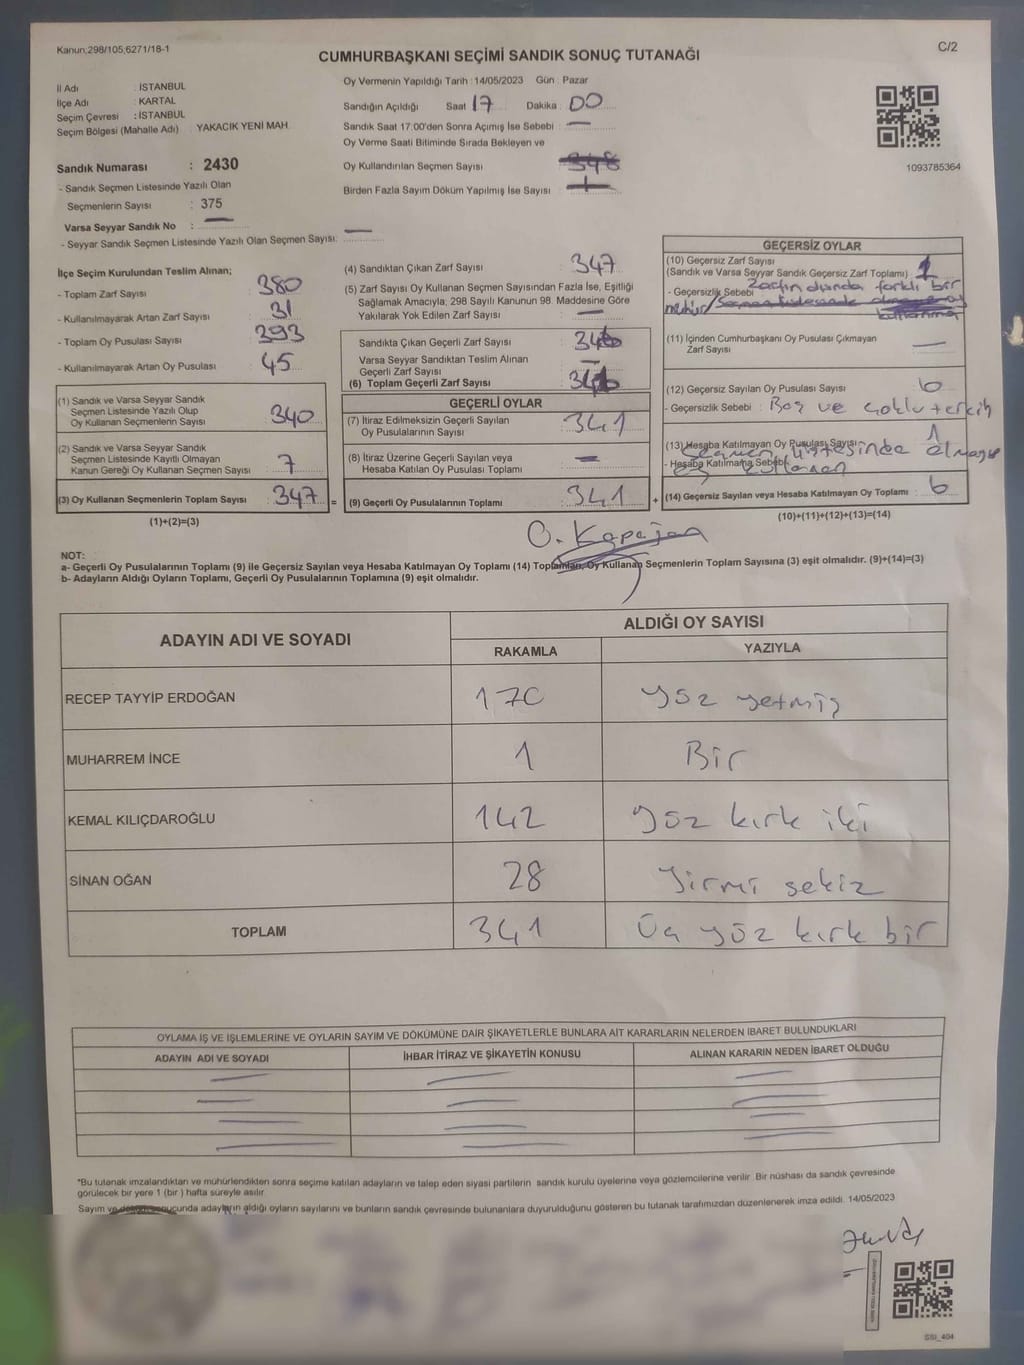 Kanun:298/105,6271/18-1
C/2
CUMHURBAŞKANI SEÇİMİ SANDIK SONUÇ TUTANAĞI
İl Adı : İSTANBUL
İlçe Adı : KARTAL
Seçim Çevresi : İSTANBUL
Seçim Bölgesi (Mahalle Adı) YAKACIK YENİ MAH.
Sandık Numarası : 2430
- Sandık Seçmen Listesinde Yazılı Olan
Seçmenlerin Sayısı : 375
Varsa Seyyar Sandık No : —
- Seyyar Sandık Seçmen Listesinde Yazılı Olan Seçmen Sayısı: —
Oy Vermenin Yapıldığı Tarih : 14/05/2023 Gün : Pazar
Sandığın Açıldığı Saat 17 Dakika : 00
Sandık Saat 17.00'den Sonra Açımış İse Sebebi : —
Oy Verme Saati Bitiminde Sırada Bekleyen ve
Oy Kullandırılan Seçmen Sayısı
Birden Fazla Sayım Döküm Yapılmış İse Sayısı :
1093785364
İlçe Seçim Kurulundan Teslim Alınan;
- Toplam Zarf Sayısı : 380
- Kullanılmayarak Artan Zarf Sayısı : 31
- Toplam Oy Pusulası Sayısı : 393
- Kullanılmayarak Artan Oy Pusulası : 45
(1) Sandık ve Varsa Seyyar Sandık
Seçmen Listesinde Yazılı Olup
Oy Kullanan Seçmenlerin Sayısı : 340
(2) Sandık ve Varsa Seyyar Sandık
Seçmen Listesinde Kayıtlı Olmayan
Kanun Gereği Oy Kullanan Seçmen Sayısı : 7
(3) Oy Kullanan Seçmenlerin Toplam Sayısı : 347 =
(1)+(2)=(3)
(4) Sandıktan Çıkan Zarf Sayısı : 347
(5) Zarf Sayısı Oy Kullanan Seçmen Sayısından Fazla İse, Eşitliği
Sağlamak Amacıyla; 298 Sayılı Kanunun 98. Maddesine Göre
Yakılarak Yok Edilen Zarf Sayısı : —
Sandıkta Çıkan Geçerli Zarf Sayısı : 346
Varsa Seyyar Sandıktan Teslim Alınan
Geçerli Zarf Sayısı : —
(6) Toplam Geçerli Zarf Sayısı : 346
GEÇERLİ OYLAR
(7) İtiraz Edilmeksizin Geçerli Sayılan
Oy Pusulalarının Sayısı : 341
(8) İtiraz Üzerine Geçerli Sayılan veya
Hesaba Katılan Oy Pusulası Toplamı : —
(9) Geçerli Oy Pusulalarının Toplamı : 341 +
GEÇERSİZ OYLAR
(10) Geçersiz Zarf Sayısı
(Sandık ve Varsa Seyyar Sandık Geçersiz Zarf Toplamı) : 1
- Geçersizlik Sebebi : Zarfın dışında farklı bir
mühür
(11) İçinden Cumhurbaşkanı Oy Pusulası Çıkmayan
Zarf Sayısı : —
(12) Geçersiz Sayılan Oy Pusulası Sayısı : 6
- Geçersizlik Sebebi : Boş ve çoklu tercih
(13) Hesaba Katılmayan Oy Pusulası Sayısı : 1
- Hesaba Katılmama Sebebi
(14) Geçersiz Sayılan veya Hesaba Katılmayan Oy Toplamı : 6
(10)+(11)+(12)+(13)=(14)
NOT:
a- Geçerli Oy Pusulalarının Toplamı (9) ile Geçersiz Sayılan veya Hesaba Katılmayan Oy Toplamı (14) Toplamları, Oy Kullanan Seçmenlerin Toplam Sayısına (3) eşit olmalıdır. (9)+(14)=(3)
b- Adayların Aldığı Oyların Toplamı, Geçerli Oy Pusulalarının Toplamına (9) eşit olmalıdır.
ADAYIN ADI VE SOYADI
ALDIĞI OY SAYISI
RAKAMLA YAZIYLA
RECEP TAYYİP ERDOĞAN 170 yüz yetmiş
MUHARREM İNCE 1 Bir
KEMAL KILIÇDAROĞLU 142 yüz kırk iki
SİNAN OĞAN 28 Yirmi sekiz
TOPLAM 341 Üç yüz kırk bir
OYLAMA İŞ VE İŞLEMLERİNE VE OYLARIN SAYIM VE DÖKÜMÜNE DAİR ŞİKAYETLERLE BUNLARA AİT KARARLARIN NELERDEN İBARET BULUNDUKLARI
ADAYIN ADI VE SOYADI İHBAR İTİRAZ VE ŞİKAYETİN KONUSU ALINAN KARARIN NEDEN İBARET OLDUĞU
*Bu tutanak imzalandıktan ve mühürlendikten sonra seçime katılan adayların ve talep eden siyasi partilerin sandık kurulu üyelerine veya gözlemcilerine verilir. Bir nüshası da sandık çevresinde
görülecek bir yere 1 (bir ) hafta süreyle asılır.
Sayım ve döküm sonucunda adayların aldığı oyların sayılarını ve bunların sandık çevresinde bulunanlara duyurulduğunu gösteren bu tutanak tarafımızdan düzenlenerek imza edildi. 14/05/2023
SSI_404